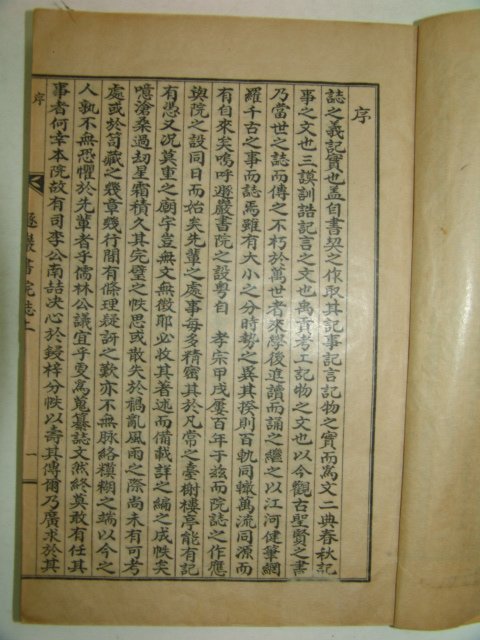 序
誌之義記實也盖自書契之作取其記事記言記物之實而爲文二典春秋記
事之文也三謨訓誥記言之文也禹貢考工記物之文也以今觀古聖賢之書
乃當世之誌而傳之不朽於萬世者來學後進讀而誦之繼之以江河健筆網
羅千古之事而誌焉雖有大小之分時勢之異其揆則百軌同轍萬流同源而
有自來矣嗚呼遯巖書院之設粤自 孝宗甲戌屢百年于玆而院誌之作應
與院之設同日而始矣先輩之處事每多精密其於凡常之臺榭樓亭能有記
有憑又況莫重之廟宇豈無文無徵耶必收其著述而備載詳之編之成帙矣
噫滄桑過刧星霜積久其完璧之帙思或散失於禍亂風雨之際尚未有可考
處或於笥藏之幾章幾行間有條理疑訝之歎亦不無脉絡糢糊之端以今之
人孰不無恐懼於先輩者乎儒林公議宜乎更爲蒐纂誌文然終莫敢有任其
事者何幸本院故有司李公南喆决心於鋟梓分帙以壽其傳爾乃廣求於其
序
遯巖書院誌上
一